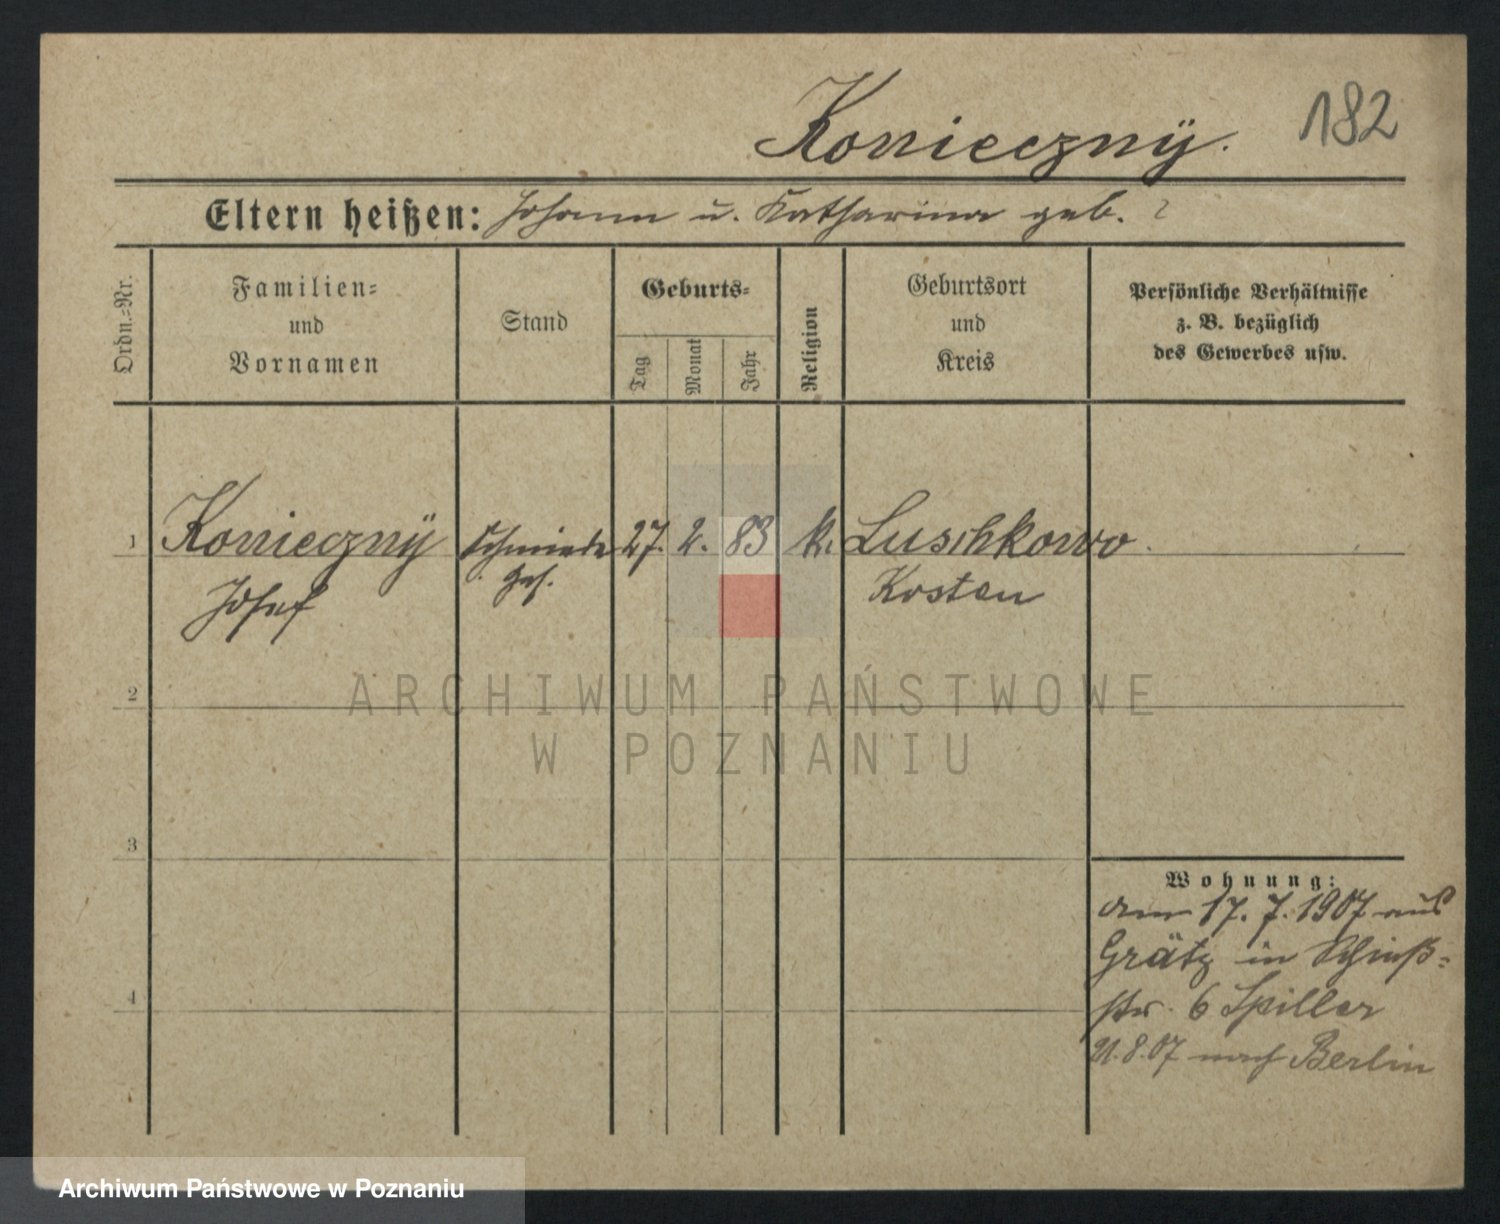 Konieczny.
182
Eltern heißen: Johann u. Katharina geb. ?
Ordn.=Nr.
Familien=
und
Vornamen
Stand
Geburts=
Tag
Monat
Jahr
Religion
Geburtsort
und
Kreis
Persönliche Verhältnisse
z. B. bezüglich
des Gewerbes usw.
1
Konieczny
Josef
Schmiede
ges.
27. 2. 83
k.
Luschkowo
Kosten
2
3
4
Wohnung:
am 17. 7. 1907 aus
Grätz in Schieß=
str. 6 Spiller
21.8.07 nach Berlin
ARCHIWUM PAŃSTWOWE
W POZNANIU
Archiwum Państwowe w Poznaniu